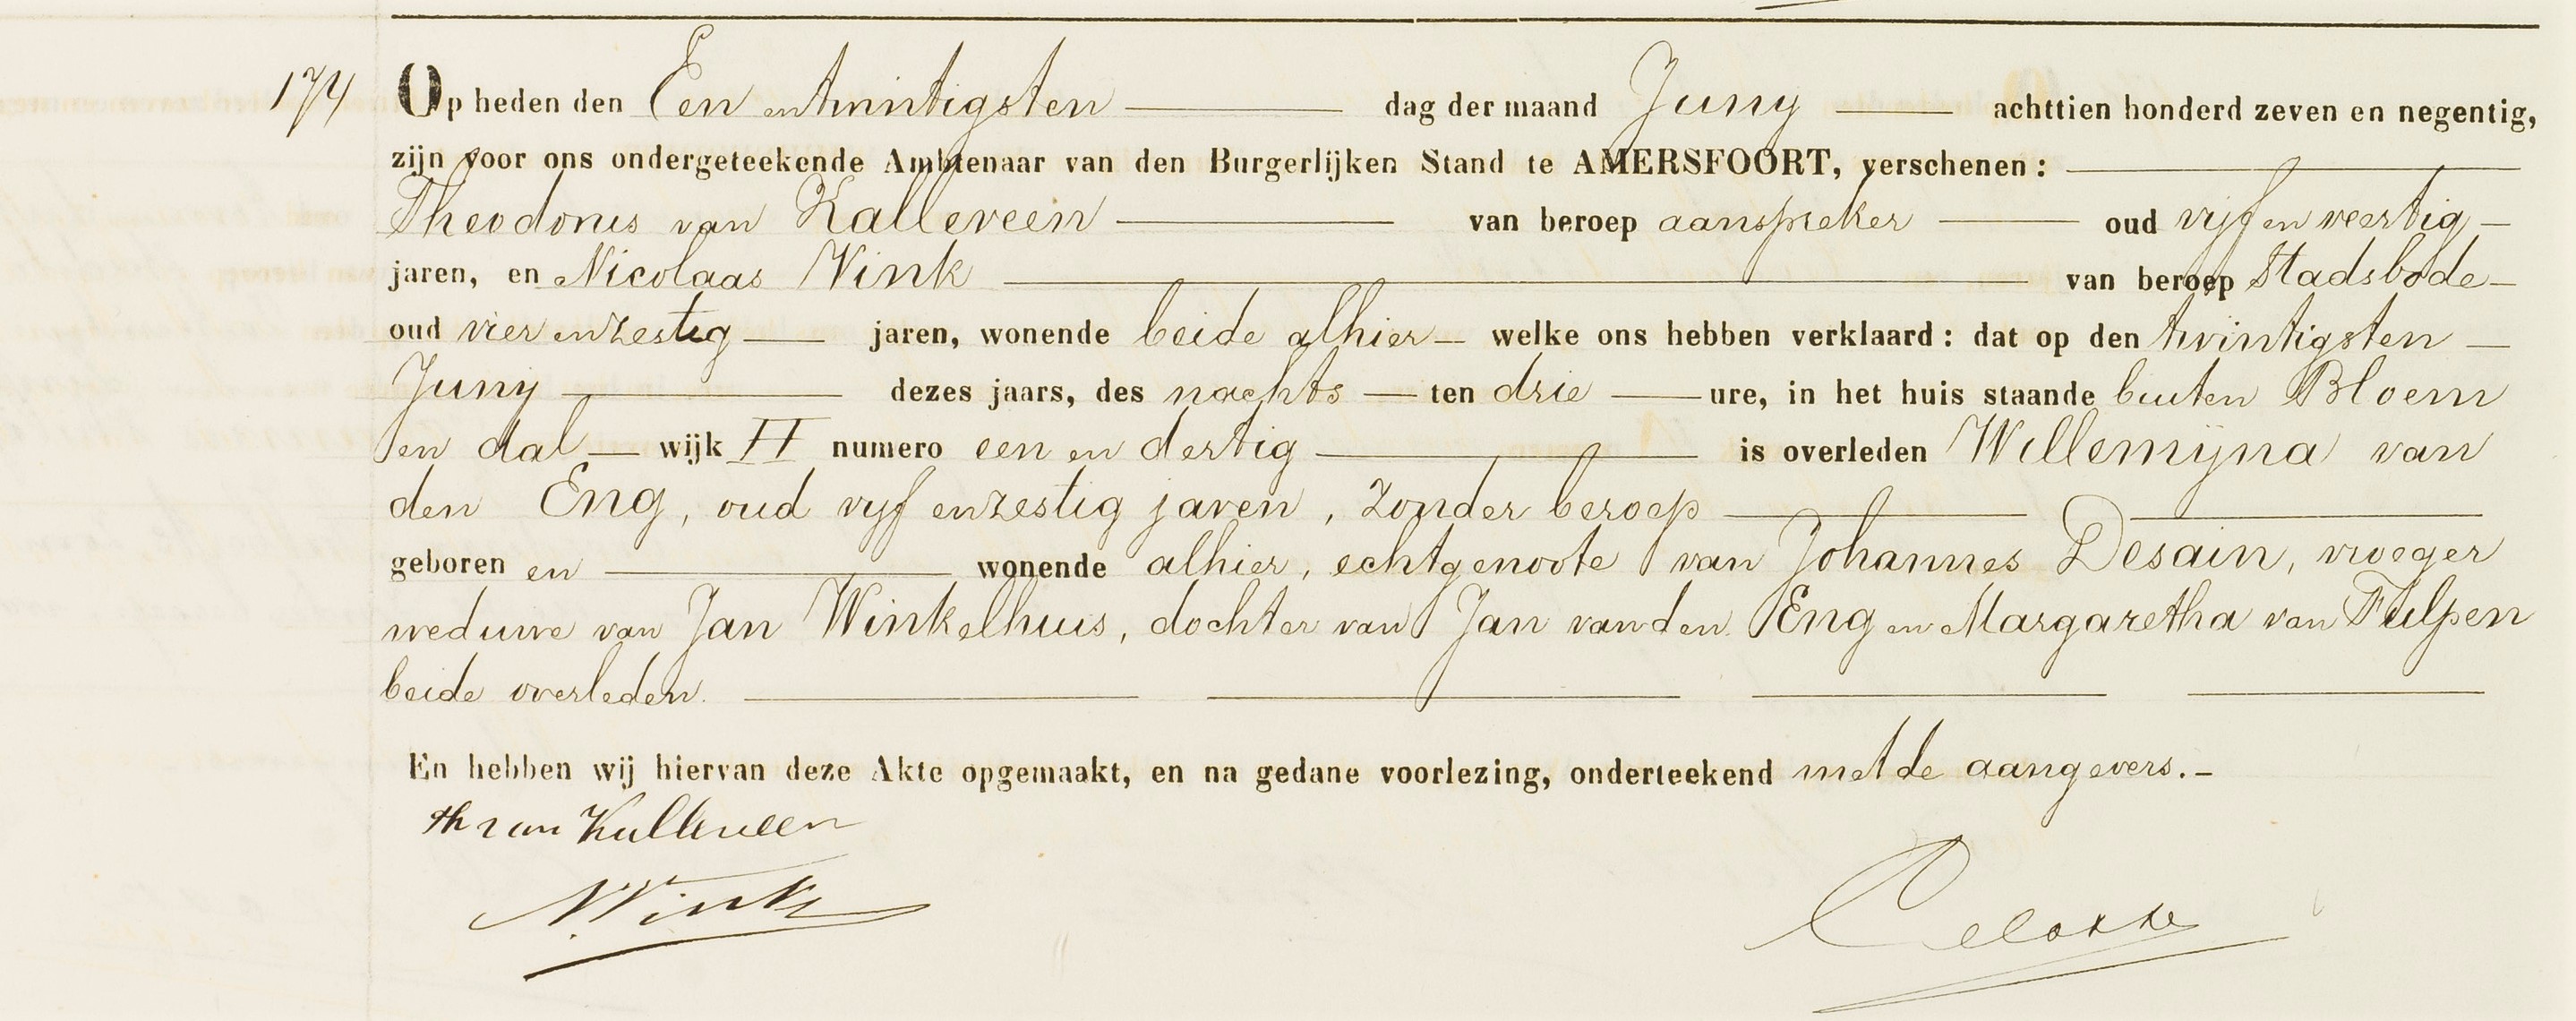 174
Op heden den Een en twintigsten dag der maand Juny achttien honderd zeven en negentig,
zijn voor ons ondergeteekende Ambtenaar van den Burgerlijken Stand te AMERSFOORT, verschenen:
Theodorus van Kalleveen van beroep aanspreker oud vijf en veertig
jaren, en Nicolaas Vink van beroep Stadsbode
oud vier en zestig jaren, wonende beide alhier welke ons hebben verklaard: dat op den twintigsten
Juny dezes jaars, des nachts ten drie ure, in het huis staande buiten Bloem
en dal wijk II numero een en dertig is overleden Willemijna van
den Eng, oud vijf en zestig jaren, zonder beroep
geboren en wonende alhier, echtgenoote van Johannes Desain, vroeger
weduwe van Jan Winkelhuis, dochter van Jan van den Eng en Margaretha van Fulpen
beide overleden.
En hebben wij hiervan deze Akte opgemaakt, en na gedane voorlezing, onderteekend met de aangevers.
th van Kalleveen
N. Vink